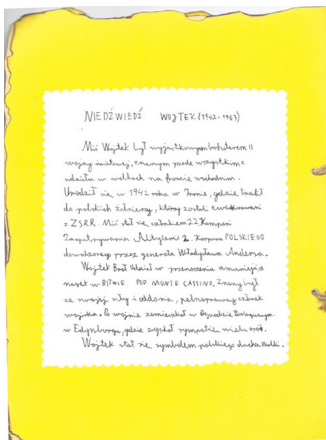 NIEDŹWIEDŹ WOJTEK (1942-1963)
Miś Wojtek był wyjątkowym bohaterem II
wojny światowej, znanym przede wszystkim z
udziału w walkach na froncie wschodnim.
Urodził się w 1942 roku w Iranie, gdzie trafił
do polskich żołnierzy, którzy zostali ewakuowani
z ZSRR. Miś stał się członkiem 22 Kompanii
Zaopatrywania Artylerii 2. Korpusu POLSKIEGO
dowodzonego przez generała Władysława Andersa.
Wojtek Brał Udział w przenoszeniu amunicji a
nawet w BITWIE POD MONTE CASSINO. Znany był
ze swojej siły i oddania, pełnoprawny członek
wojska. Po wojnie zamieszkał w Ogrodzie Zoologicznym
w Edynburgu, gdzie zyskał sympatię wielu osób.
Wojtek stał się symbolem polskiego ducha Walki.